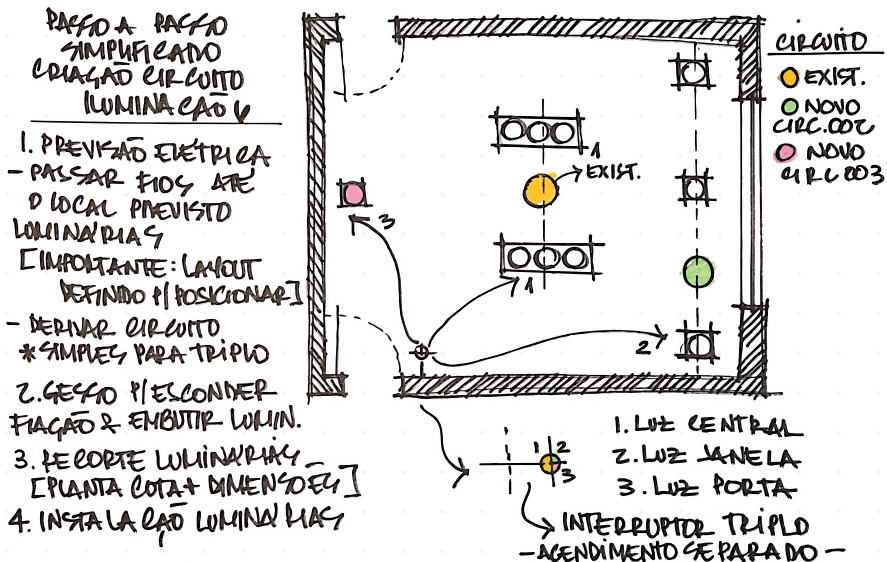 PASSO A PASSO
SIMPLIFICADO
CRIAÇÃO CIRCUITO
ILUMINAÇÃO
1. PREVISÃO ELÉTRICA
- PASSAR FIOS ATÉ
O LOCAL PREVISTO
LUMINÁRIAS
[IMPORTANTE: LAYOUT
DEFINIDO P/ POSICIONAR]
- DERIVAR CIRCUITO
* SIMPLES PARA TRIPLO
2. GESSO P/ ESCONDER
FIAÇÃO & EMBUTIR LUMIN.
3. RECORTE LUMINÁRIAS
[PLANTA COTA + DIMENSÕES]
4. INSTALAÇÃO LUMINÁRIAS
1
EXIST.
1
3
2
CIRCUITO
EXIST.
NOVO
CIRC. 002
NOVO
CIRC 003
1 2
3
INTERRUPTOR TRIPLO
- ACENDIMENTO SEPARADO -
1. LUZ CENTRAL
2. LUZ JANELA
3. LUZ PORTA